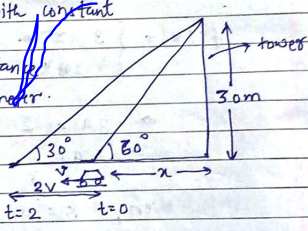 ith constant
tower
30m
30°
60°
v
x
2v
t=2
t=0